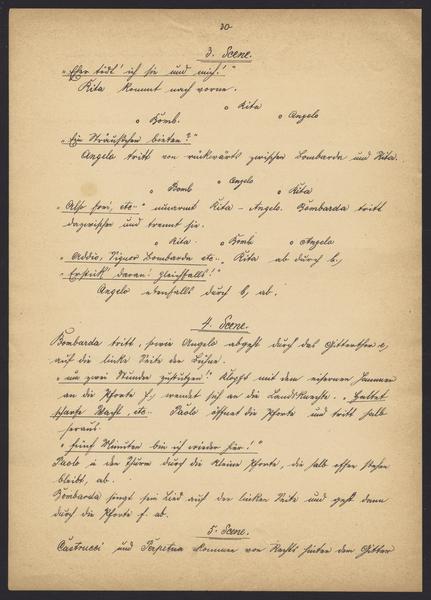 30
3. Scene.
„Eher tödt' ich sie und mich!"
Rita kommt nach vorne.
o Rita
o Bomb. o Angelo
„Ein Sträußchen bieten?"
Angelo tritt von rückwärts zwischen Bombarda und Rita.
o Bomb o Angelo o Rita
„Also frei, etc." umarmt Rita - Angelo. Bombarda tritt
dazwischen und trennt sie.
o Rita o Bomb o Angelo
„Addio, Signor Bombarda etc.„ Rita ab durch b,
„Erstick' daran! gleichfalls!"
Angelo ebenfalls durch b, ab.
4. Scene.
Bombarda tritt, sowie Angelo abgeht durch das Gitterthor e,
auf die linke Seite der Bühne.
„ zwei Stunden " Klopft mit dem eisernen Hammer
an die Pforte f, wendet sich an die Landsknechte. „Haltet
scharfe Wacht, etc. Paolo öffnet die Pforte und tritt halb
heraus.
„fünf Minuten bin ich wieder hier!"
Paolo in den Thurm durch die kleine Pforte, die halb offen stehen
bleibt, ab.
Bombarda singt sein Lied auf der linken Seite und geht dann
durch die Pforte f. ab.
5. Scene.
Castrucci und Perpetua kommen von Rechts hinter dem Gitter